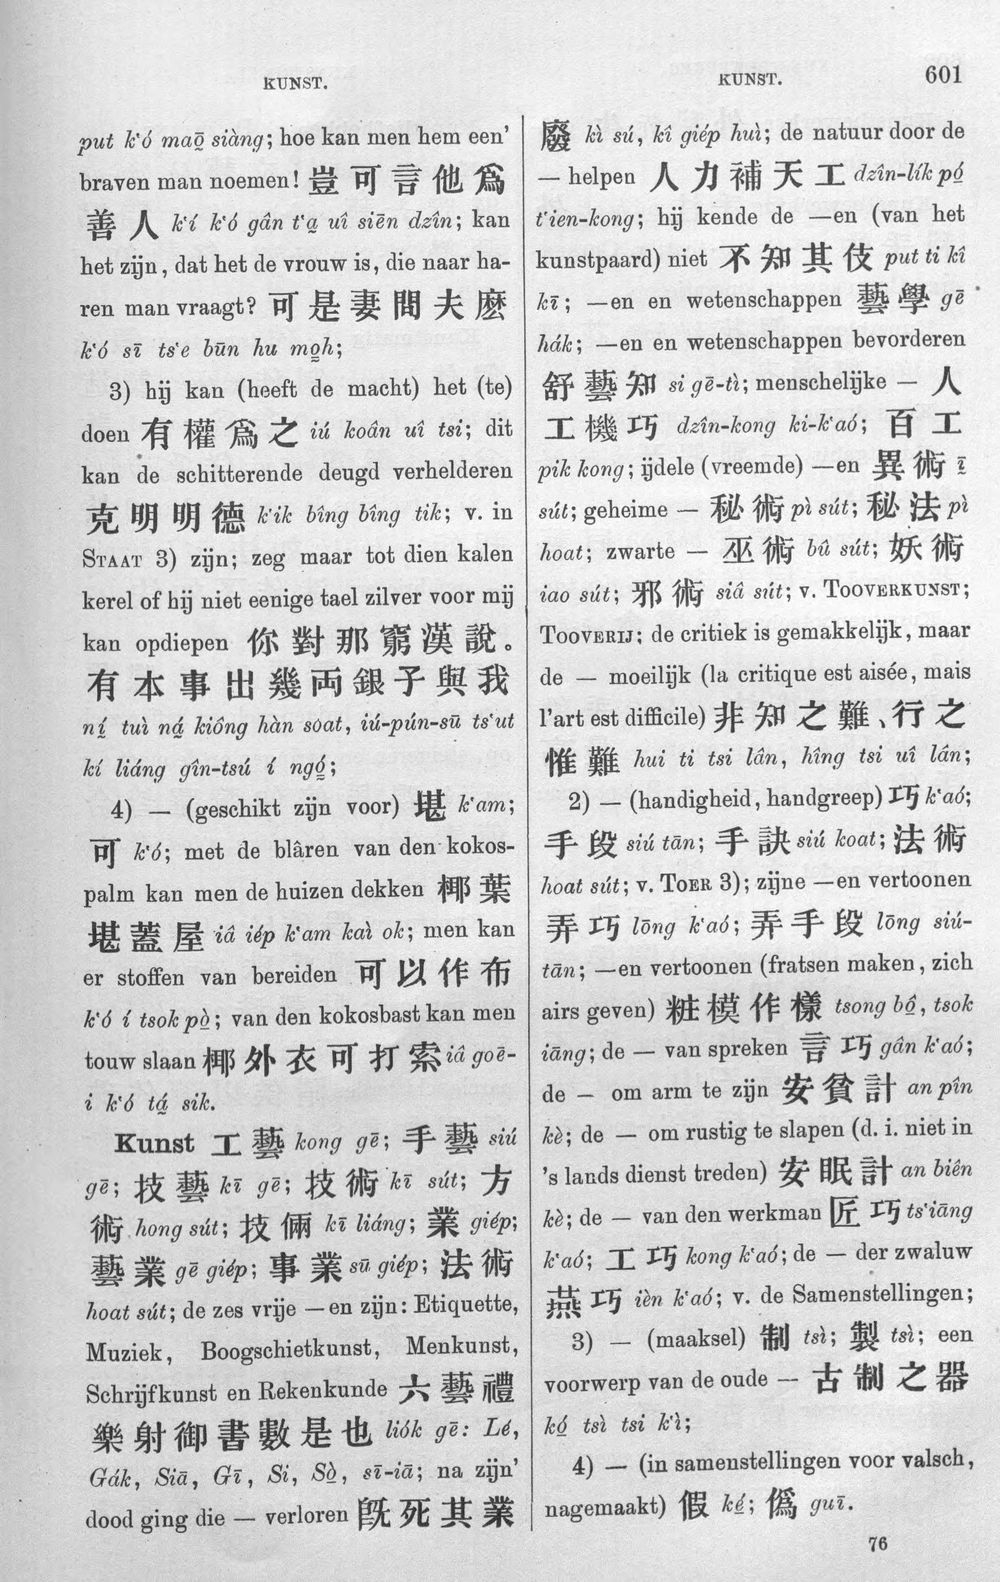 KUNST.
KUNST.
601
put k‘ó maō̱ siàng; hoe kan men hem een’
braven man noemen! 豈可言他爲
善人 k‘í k‘ó gân t‘a̱ uî siēn dzîn; kan
het zijn, dat het de vrouw is, die naar ha-
ren man vraagt? 可是妻問夫麽
k‘ó sī ts‘e būn hu mo̱h;
3) hij kan (heeft de macht) het (te)
doen 有權爲之 iú koân uî tsi; dit
kan de schitterende deugd verhelderen
克明明德 k‘ik bîng bîng tik; v. in
STAAT 3) zijn; zeg maar tot dien kalen
kerel of hij niet eenige tael zilver voor mij
kan opdiepen 你對那窮漢説。
有本事出幾両銀子與我
ní̱ tuì ná̱ kiông hàn soat, iú-pún-sū ts‘ut
kí liáng gîn-tsú í ngó̱;
4) — (geschikt zijn voor) 堪 k‘am;
可 k‘ó; met de blâren van den kokos-
palm kan men de huizen dekken 椰葉
堪蓋屋 iâ iép k‘am kaì ok; men kan
er stoffen van bereiden 可以作布
k‘ó í tsok pò̱; van den kokosbast kan men
touw slaan 椰外衣可打索 iâ goē-
i k‘ó tá̱ sik.
Kunst 工藝 kong gē; 手藝 siú
gē; 技藝 kī gē; 技術 kī sút; 方
術 hong sút; 技倆 kī liáng; 業 giép;
藝業 gē giép; 事業 sū giép; 法術
hoat sút; de zes vrije —en zijn: Etiquette,
Muziek, Boogschietkunst, Menkunst,
Schrijfkunst en Rekenkunde 六藝禮
樂射御書數是也 liók gē: Lé,
Gák, Siā, Gī, Si, Sò̱, sī-iā; na zijn’
dood ging die — verloren 旣死其業
廢 kì sú, kî giép huì; de natuur door de
— helpen 人力補天工 dzîn-lík pó̱
t‘ien-kong; hij kende de —en (van het
kunstpaard) niet 不知其伎 put ti kî
kī; —en en wetenschappen 藝學 gē
hák; —en en wetenschappen bevorderen
舒藝知 si gē-tì; menschelijke — 人
工機巧 dzîn-kong ki-k‘aó; 百工
pik kong; ijdele (vreemde) —en 異術 ī
sút; geheime — 秘術 pì sút; 秘法 pì
hoat; zwarte — 巫術 bû sút; 妖術
iao sút; 邪術 siâ sút; v. TOOVERKUNST;
TOOVERIJ; de critiek is gemakkelijk, maar
de — moeilijk (la critique est aisée, mais
l’art est difficile) 非知之難、行之
惟難 hui ti tsi lân, hîng tsi uî lán;
2) — (handigheid, handgreep) 巧 k‘aó;
手段 siú tān; 手訣 siú koat; 法術
hoat sút; v. TOER 3); zijne —en vertoonen
弄巧 lōng k‘aó; 弄手段 lōng siú-
tān; —en vertoonen (fratsen maken, zich
airs geven) 粧模作樣 tsong bô̱, tsok
iāng; de — van spreken 言巧 gân k‘aó;
de — om arm te zijn 安貧計 an pîn
kè; de — om rustig te slapen (d. i. niet in
’s lands dienst treden) 安眠計 an biên
kè; de — van den werkman 匠巧 ts‘iāng
k‘aó; 工巧 kong k‘aó; de — der zwaluw
燕巧 ièn k‘aó; v. de Samenstellingen;
3) — (maaksel) 制 tsì; 製 tsì; een
voorwerp van de oude — 古制之器
kó̱ tsì tsi k‘ì;
4) — (in samenstellingen voor valsch,
nagemaakt) 假 ké̱; 僞 guī.
76